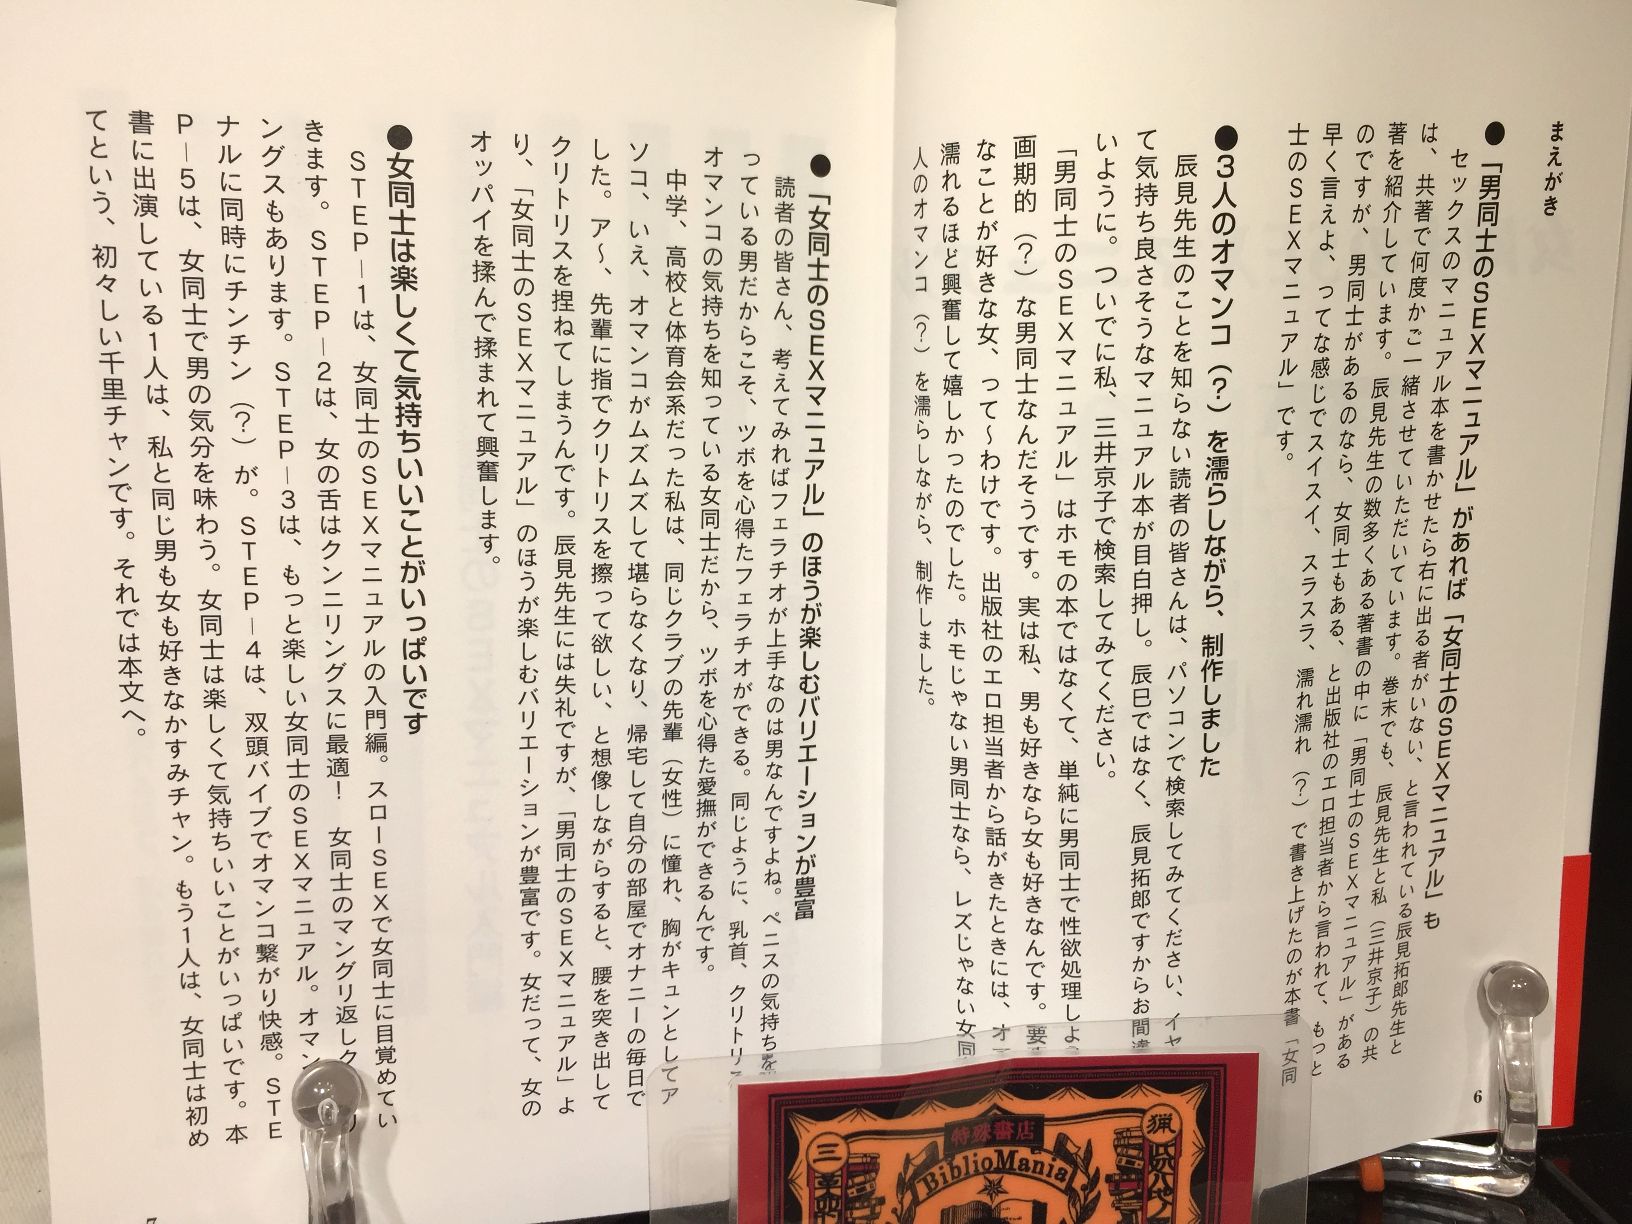 まえがき
●「男同士のSEXマニュアル」があれば「女同士のSEXマニュアル」も
セックスのマニュアル本を書かせたら右に出る者がいない、と言われている辰見拓郎先生と
は、共著で何度かご一緒させていただいています。巻末でも、辰見先生と私（三井京子）の共
著を紹介しています。辰見先生の数多くある著書の中に「男同士のSEXマニュアル」がある
のですが、男同士があるのなら、女同士もある、と出版社のエロ担当者から言われて、もっと
早く言えよ、ってな感じでスイスイ、スラスラ、濡れ濡れ（？）で書き上げたのが本書「女同
士のSEXマニュアル」です。
●3人のオマンコ（？）を濡らしながら、制作しました
辰見先生のことを知らない読者の皆さんは、パソコンで検索してみてください、イヤ
て気持ち良さそうなマニュアル本が目白押し。辰巳ではなく、辰見拓郎ですからお間違
いように。ついでに私、三井京子で検索してみてください。
「男同士のSEXマニュアル」はホモの本ではなくて、単純に男同士で性欲処理しよ
画期的（？）な男同士なんだそうです。実は私、男も好きなら女も好きなんです。要
なことが好きな女、って～わけです。出版社のエロ担当者から話がきたときには、オ
濡れるほど興奮して嬉しかったのでした。ホモじゃない男同士なら、レズじゃない女同
人のオマンコ（？）を濡らしながら、制作しました。
6
●「女同士のSEXマニュアル」のほうが楽しむバリエーションが豊富
読者の皆さん、考えてみればフェラチオが上手なのは男なんですよね。ペニスの気持ちを
っている男だからこそ、ツボを心得たフェラチオができる。同じように、乳首、クリトリ
オマンコの気持ちを知っている女同士だから、ツボを心得た愛撫ができるんです。
●女同士は楽しくて気持ちいいことがいっぱいです
STEP―1は、女同士のSEXマニュアルの入門編。スローSEXで女同士に目覚めてい
きます。STEP―2は、女の舌はクンニリングスに最適！　女同士のマングリ返しク
ングスもあります。STEP―3は、もっと楽しい女同士のSEXマニュアル。オマン
ナルに同時にチンチン（？）が。STEP―4は、双頭バイブでオマンコ繋がり快感。STE
P―5は、女同士で男の気分を味わう。女同士は楽しくて気持ちいいことがいっぱいです。本
書に出演している1人は、私と同じ男も女も好きなかすみチャン。もう1人は、女同士は初め
てという、初々しい千里チャンです。それでは本文へ。
7
特殊書店
BiblioMania